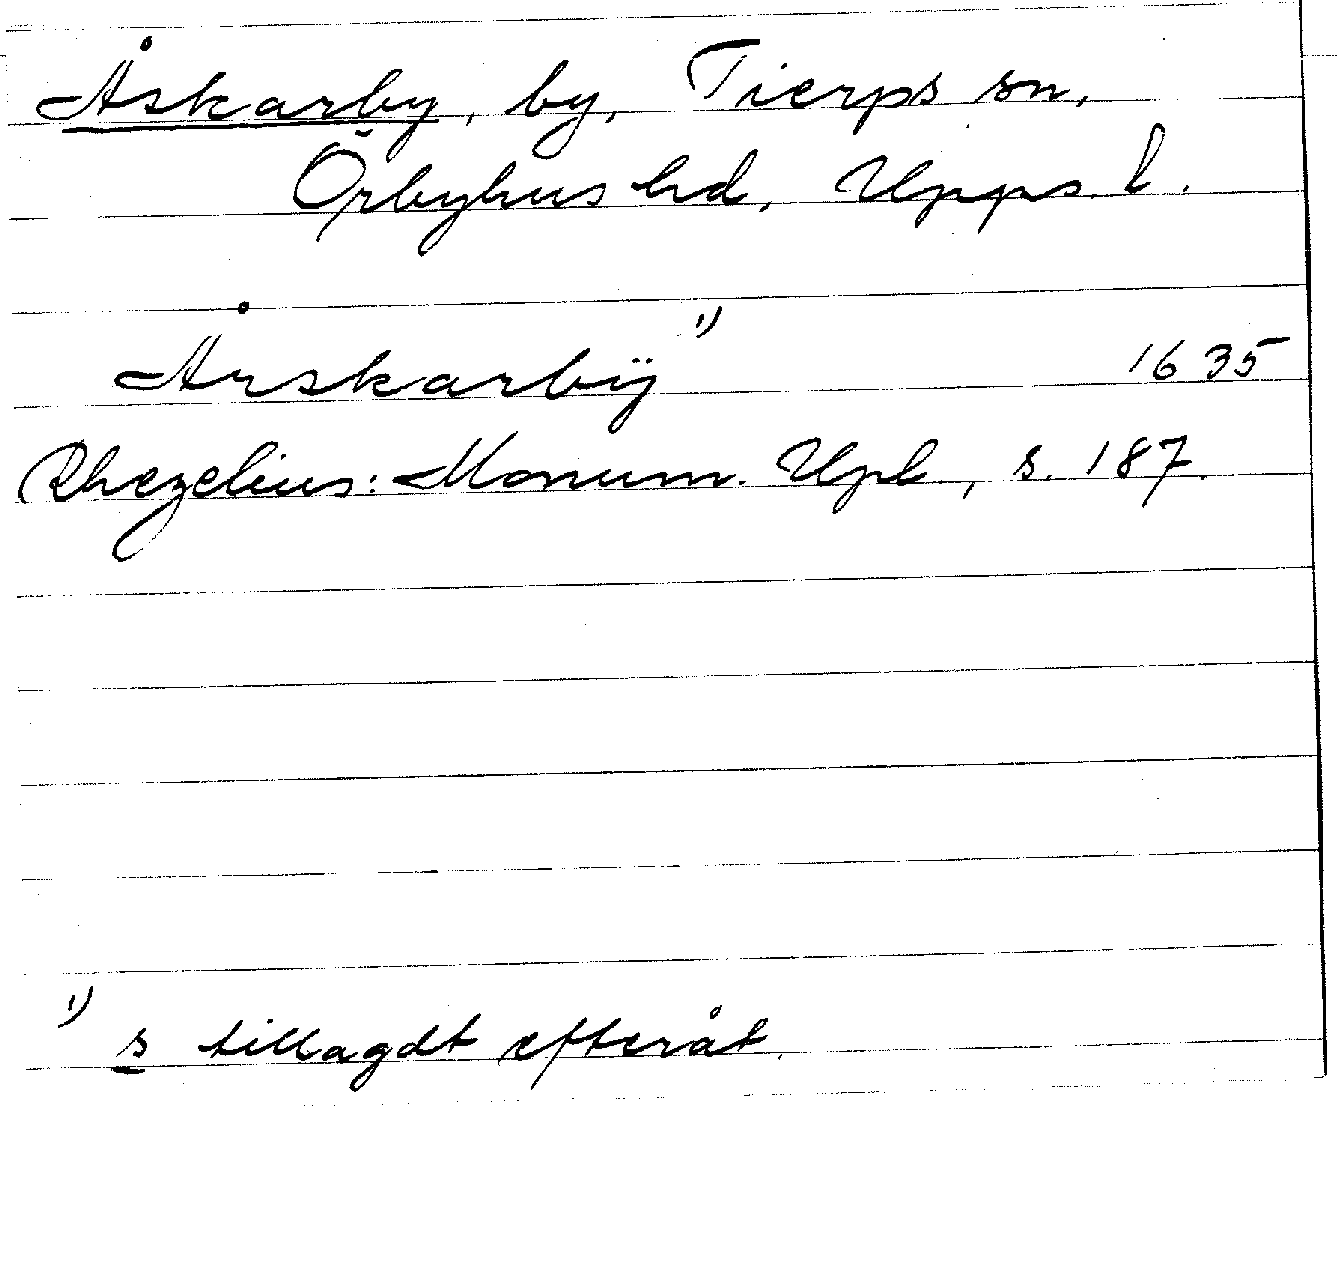 Åskarby, by, Tierps sn,
Örbyhus hd, Upps. l.
Årskarbÿ ¹⁾ 1635
Rhezelius: Monum. Upl, s. 187.
¹⁾ s tillagdt efteråt.